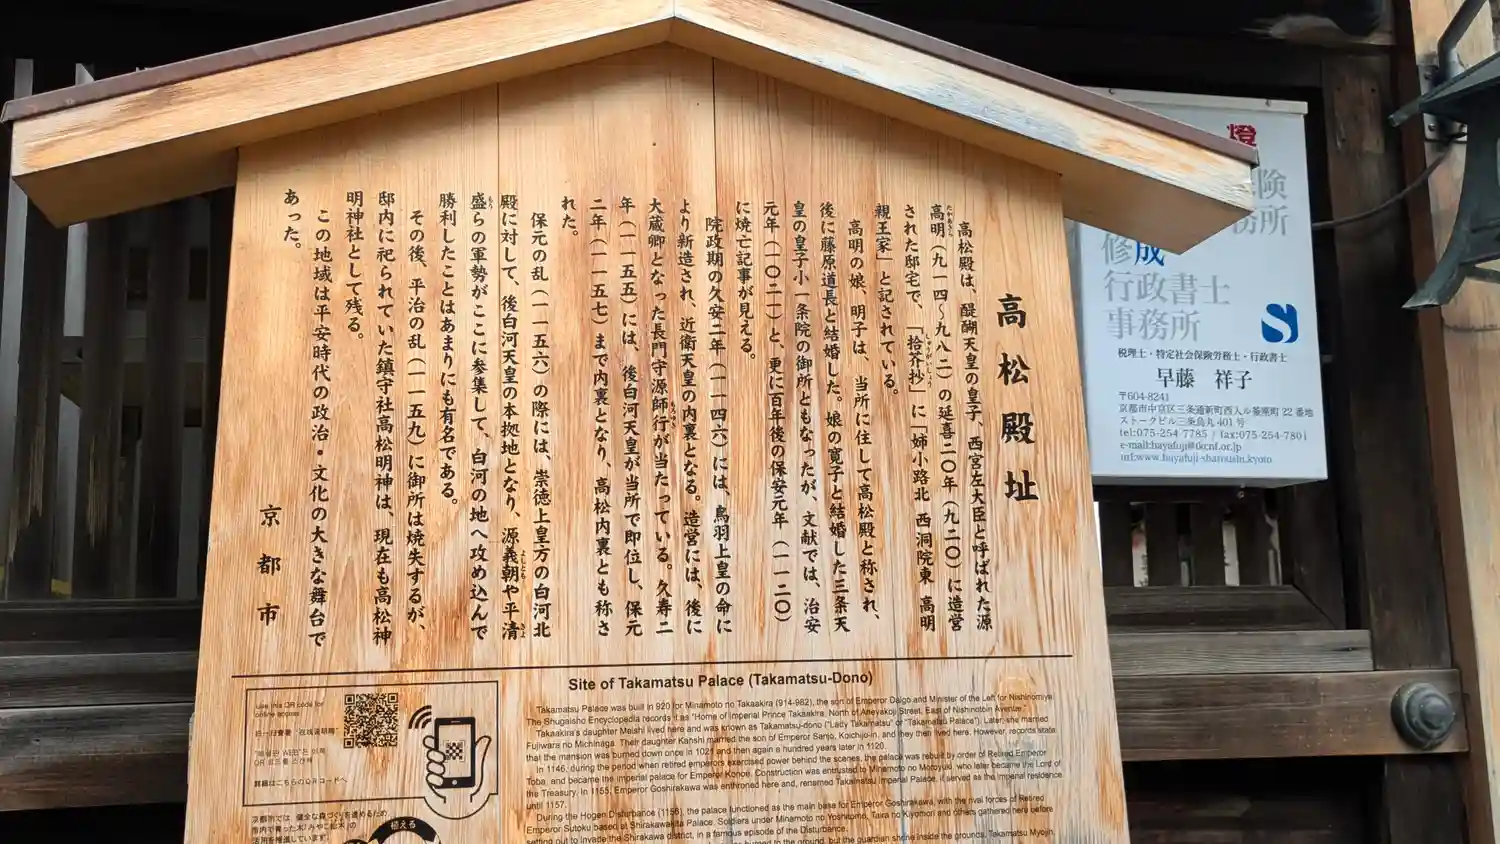 高松殿址
高松殿は、醍醐天皇の皇子、西宮左大臣と呼ばれた源
高明（九一四～九八二）の延喜二〇年（九二〇）に造営
された邸宅で、「拾芥抄」に「姉小路北 西洞院東 高明
親王家」と記されている。
高明の娘、明子は、当所に住して高松殿と称され、
後に藤原道長と結婚した。娘の寛子と結婚した三条天
皇の皇子小一条院の御所ともなったが、文献では、治安
元年（一〇二一）と、更に百年後の保安元年（一一二〇）
に焼亡記事が見える。
院政期の久安二年（一一四六）には、鳥羽上皇の命に
より新造され、近衛天皇の内裏となる。造営には、後に
大蔵卿となった長門守源師行が当たっている。久寿二
年（一一五五）には、後白河天皇が当所で即位し、保元
二年（一一五七）まで内裏となり、高松内裏とも称さ
れた。
保元の乱（一一五六）の際には、崇徳上皇方の白河北
殿に対して、後白河天皇の本拠地となり、源義朝や平清
盛らの軍勢がここに参集して、白河の地へ攻め込んで
勝利したことはあまりにも有名である。
その後、平治の乱（一一五九）に御所は焼失するが、
邸内に祀られていた鎮守社高松明神は、現在も高松神
明神社として残る。
この地域は平安時代の政治・文化の大きな舞台で
あった。
京都市
Site of Takamatsu Palace (Takamatsu-Dono)
Takamatsu Palace was built in 920 for Minamoto no Takaakira (914-982), the son of Emperor Daigo and Minister of the Left for Nishinomiya.
The Shugaisho Encyclopedia records it as "Home of Imperial Prince Takaakira, North of Aneyakoji Street, East of Nishinotoin Avenue."
Takaakira's daughter Meishi lived here and was known as Takamatsu-dono ("Lady Takamatsu" or "Takamatsu Palace"). Later, she married
Fujiwara no Michinaga. Their daughter Kanshi married the son of Emperor Sanjo, Koichijo-in, and they then lived here. However, records state
that the mansion was burned down once in 1021 and then again a hundred years later in 1120.
In 1146, during the period when retired emperors exercised power behind the scenes, the palace was rebuilt by order of Retired Emperor
Toba, and became the imperial palace for Emperor Konoe. Construction was entrusted to Minamoto no Moroyuki, who later became the Lord of
the Treasury. In 1155, Emperor Goshirakawa was enthroned here and, renamed Takamatsu Imperial Palace, it served as the imperial residence
until 1157.
During the Hogen Disturbance (1156), the palace functioned as the main base for Emperor Goshirakawa, with the rival forces of Retired
Emperor Sutoku based at Shirakawakita Palace. Soldiers under Minamoto no Yoshitomo, Taira no Kiyomori and others gathered here before
setting out to invade the Shirakawa district, in a famous episode of the Disturbance.
burned to the ground, but the guardian shrine inside the grounds, Takamatsu Myojin,
use this QR code for
online access
扫一扫查看"在线说明牌"
詳細はこちらのQRコードへ
京都市では 健全な森づくりを進めるため
市内で育った木「みやこ杣木」の
活用を推進しています。
植える
燈
険
務所
修成
行政書士
事務所
税理士・特定社会保険労務士・行政書士
早藤 祥子
〒604-8241
京都市中京区三条通新町西入ル釜座町22番地
ストークビル三条烏丸401号
tel:075-254-7785 / fax:075-254-7801
e-mail:hayafuji@tkcnf.or.jp